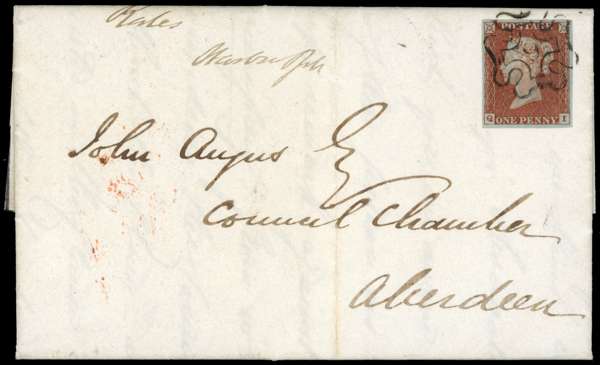 Rates
POSTAGE
ONE PENNY
John Angus Esq
Council Chamber
Aberdeen